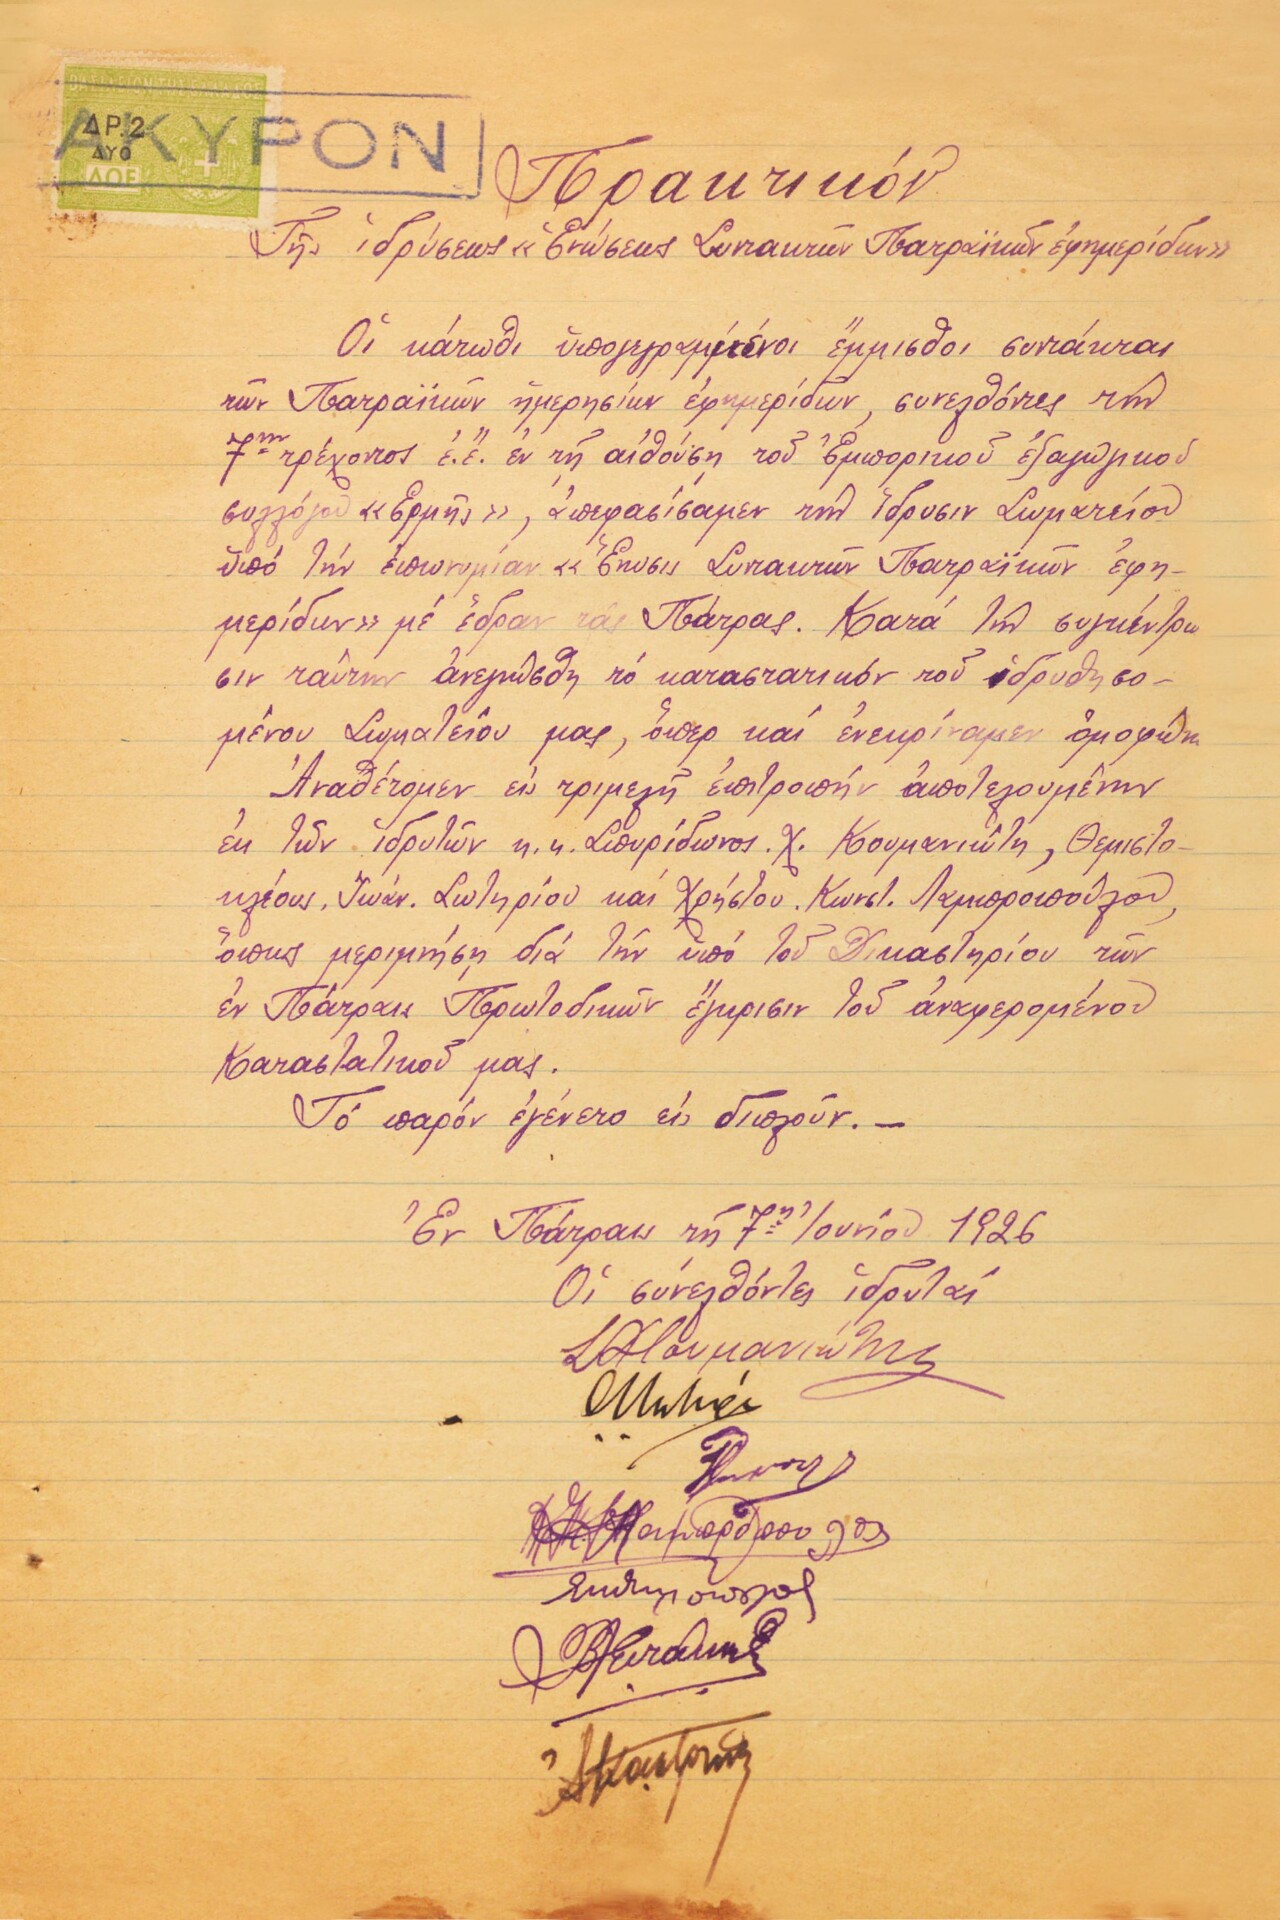 ΒΑΣΙΛΕΙΟΝ ΤΗΣ ΕΛΛΑΔΟΣ
ΔΡ. 2
ΔΥΟ
ΔΟΕ
ΑΚΥΡΟΝ
Πρακτικόν
Τῆς ἱδρύσεως «Ἑνώσεως Συντακτῶν Πατραϊκῶν ἐφημερίδων»
Οἱ κάτωθι ὑπογεγραμμένοι ἔμμισθοι συντάκται
τῶν Πατραϊκῶν ἡμερησίων ἐφημερίδων, συνελθόντες τὴν
7ην τρέχοντος ἐ.ἔ. ἐν τῇ αἰθούσῃ τοῦ Ἐμπορικοῦ ἐξαγωγικοῦ
συλλόγου «Ἑρμῆς», ἀπεφασίσαμεν τὴν ἵδρυσιν Σωματείου
ὑπό τήν ἐπωνυμίαν «Ἕνωσις Συντακτῶν Πατραϊκῶν ἐφη-
μερίδων» μέ ἕδραν τάς Πάτρας. Κατά τὴν συγκέντρω
σιν ταύτην ἀνεγνώσθη τό καταστατικόν τοῦ ἱδρυθησο-
μένου Σωματείου μας, ὅπερ καί ἐνεκρίναμεν ὁμοφώνως
Ἀναθέτομεν εἰς τριμελῆ ἐπιτροπήν ἀποτελουμένην
ἐκ τῶν ἱδρυτῶν κ.κ. Σπυρίδωνος. Χ. Κουμανιώτη, Θεμιστο-
κλέους. Ἰωάν. Σωτηρίου καί Χρήστου. Κωνστ. Λαμπροπούλου,
ὅπως μεριμνήσῃ διά τήν ὑπό τοῦ Δικαστηρίου τῶν
ἐν Πάτραις Πρωτοδικῶν ἔγκρισιν τοῦ ἀναφερομένου
Καταστατικοῦ μας.
Τό παρόν ἐγένετο εἰς διπλοῦν. —
Ἐν Πάτραις τῇ 7ῃ Ἰουνίου 1926
Οἱ συνελθόντες ἱδρυταί
Σ Χ Κουμανιώτης
Λαμπρόπουλος